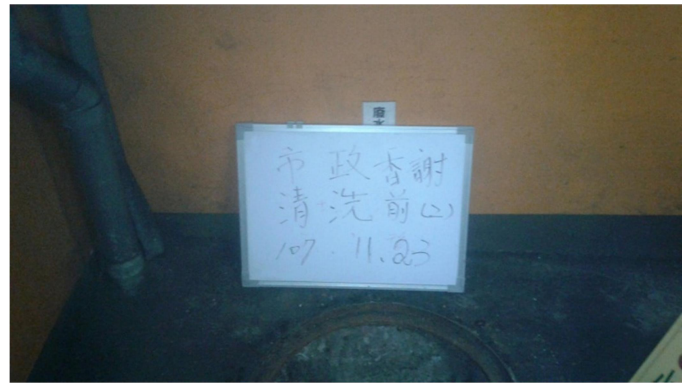 廢水
市政香謝
清洗前(2)
107.11.23